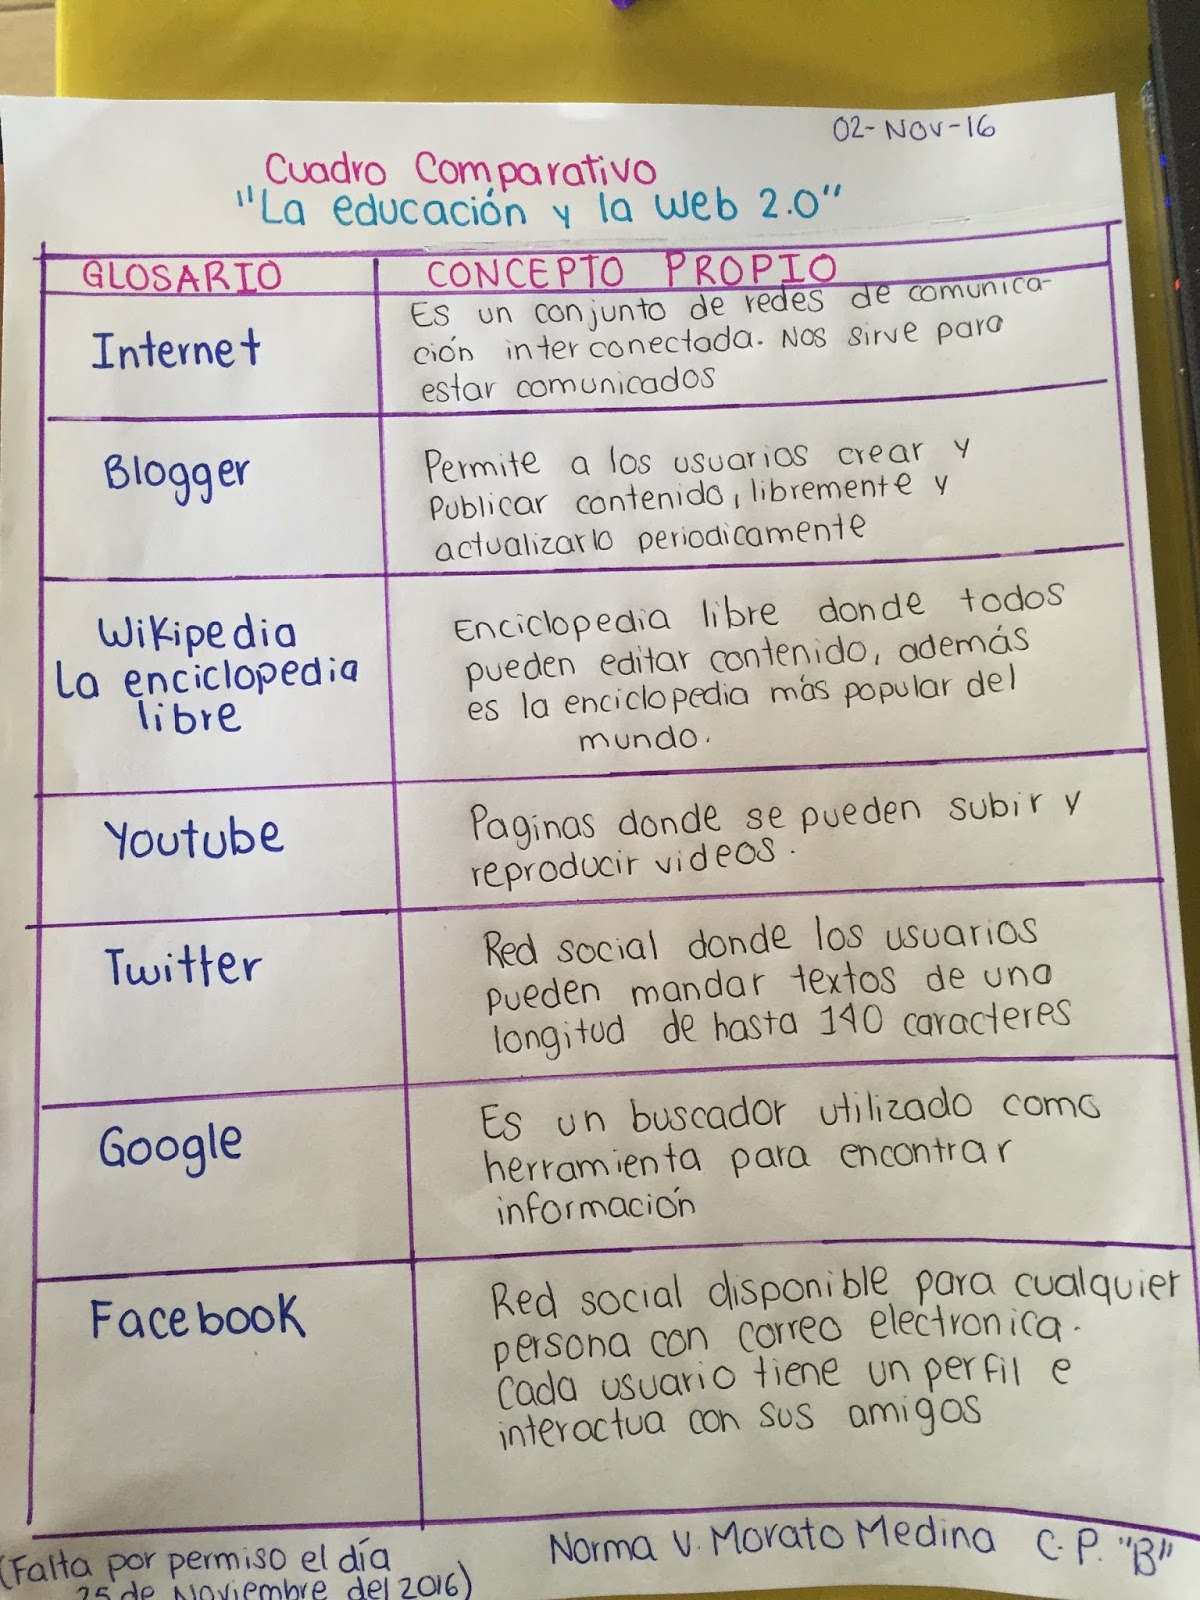 02-Nov-16
Cuadro Comparativo
"La educación y la web 2.0"
GLOSARIO
CONCEPTO PROPIO
Internet
Es un conjunto de redes de comunica-
ción interconectada. Nos sirve para
estar comunicados
Blogger
Permite a los usuarios crear y
Publicar contenido, libremente y
actualizarlo periodicamente
Wikipedia
La enciclopedia
libre
Enciclopedia libre donde todos
pueden editar contenido, además
es la enciclopedia más popular del
mundo.
Youtube
Paginas donde se pueden subir y
reproducir videos.
Twitter
Red social donde los usuarios
pueden mandar textos de una
longitud de hasta 140 caracteres
Google
Es un buscador utilizado como
herramienta para encontrar
información
Facebook
Red social disponible para cualquier
persona con correo electronica.
Cada usuario tiene un perfil e
interactua con sus amigos
Norma V. Morato Medina C.P. "B"
(Falta por permiso el día
25 de Noviembre del 2016)